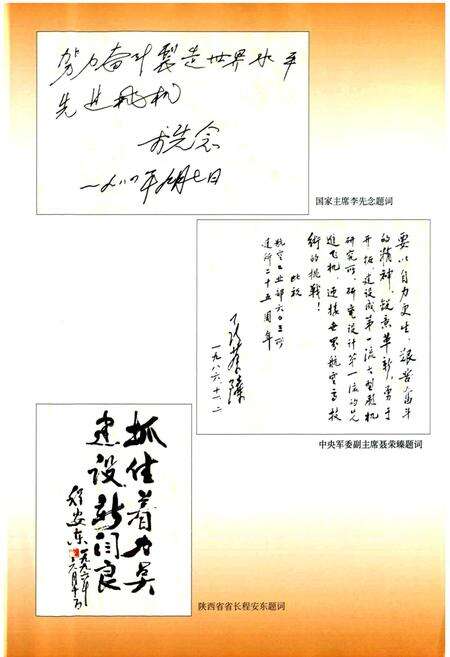 努力奋斗製造世界水平
先进飞机
李先念
一九八四年九月七日
国家主席李先念题词
要以自力更生,艰苦奋斗
的精神,锐意革新,勇于
开拓,建设成第一流大型飞机
研究所,研究设计第一流的先
进飞机,迎接世界航空高技
术的挑战!
此祝
航空工业部六〇三所
建所二十五周年
聂荣臻
一九八六·十一·二
中央军委副主席聂荣臻题词
抓住着力点
建设新阎良
程安东
一九九六年
陕西省省长程安东题词